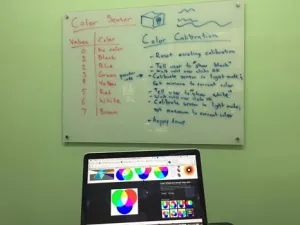 Color Sensor
Values | Color
0 No color
1 Black
2 Blue
3 Green
4 Yellow
5 Red
6 White
7 Brown
Color Calibration
- Reset existing calibration
- Tell user to "show black"
- Wait until user clicks
- Calibrate sensor in light mode,
set minimum to current color
- Tell user to "show white"
- Wait until user clicks
- Calibrate sensor in light mode,
set maximum to current color
- Happy